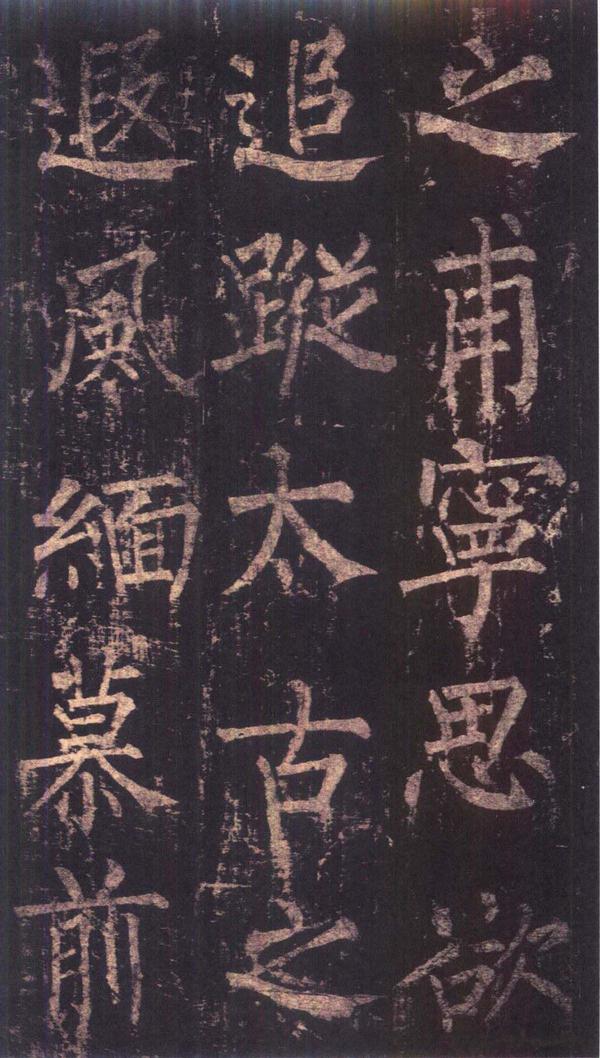 之甫寧思欲
追蹤太古之
遐風緬慕前